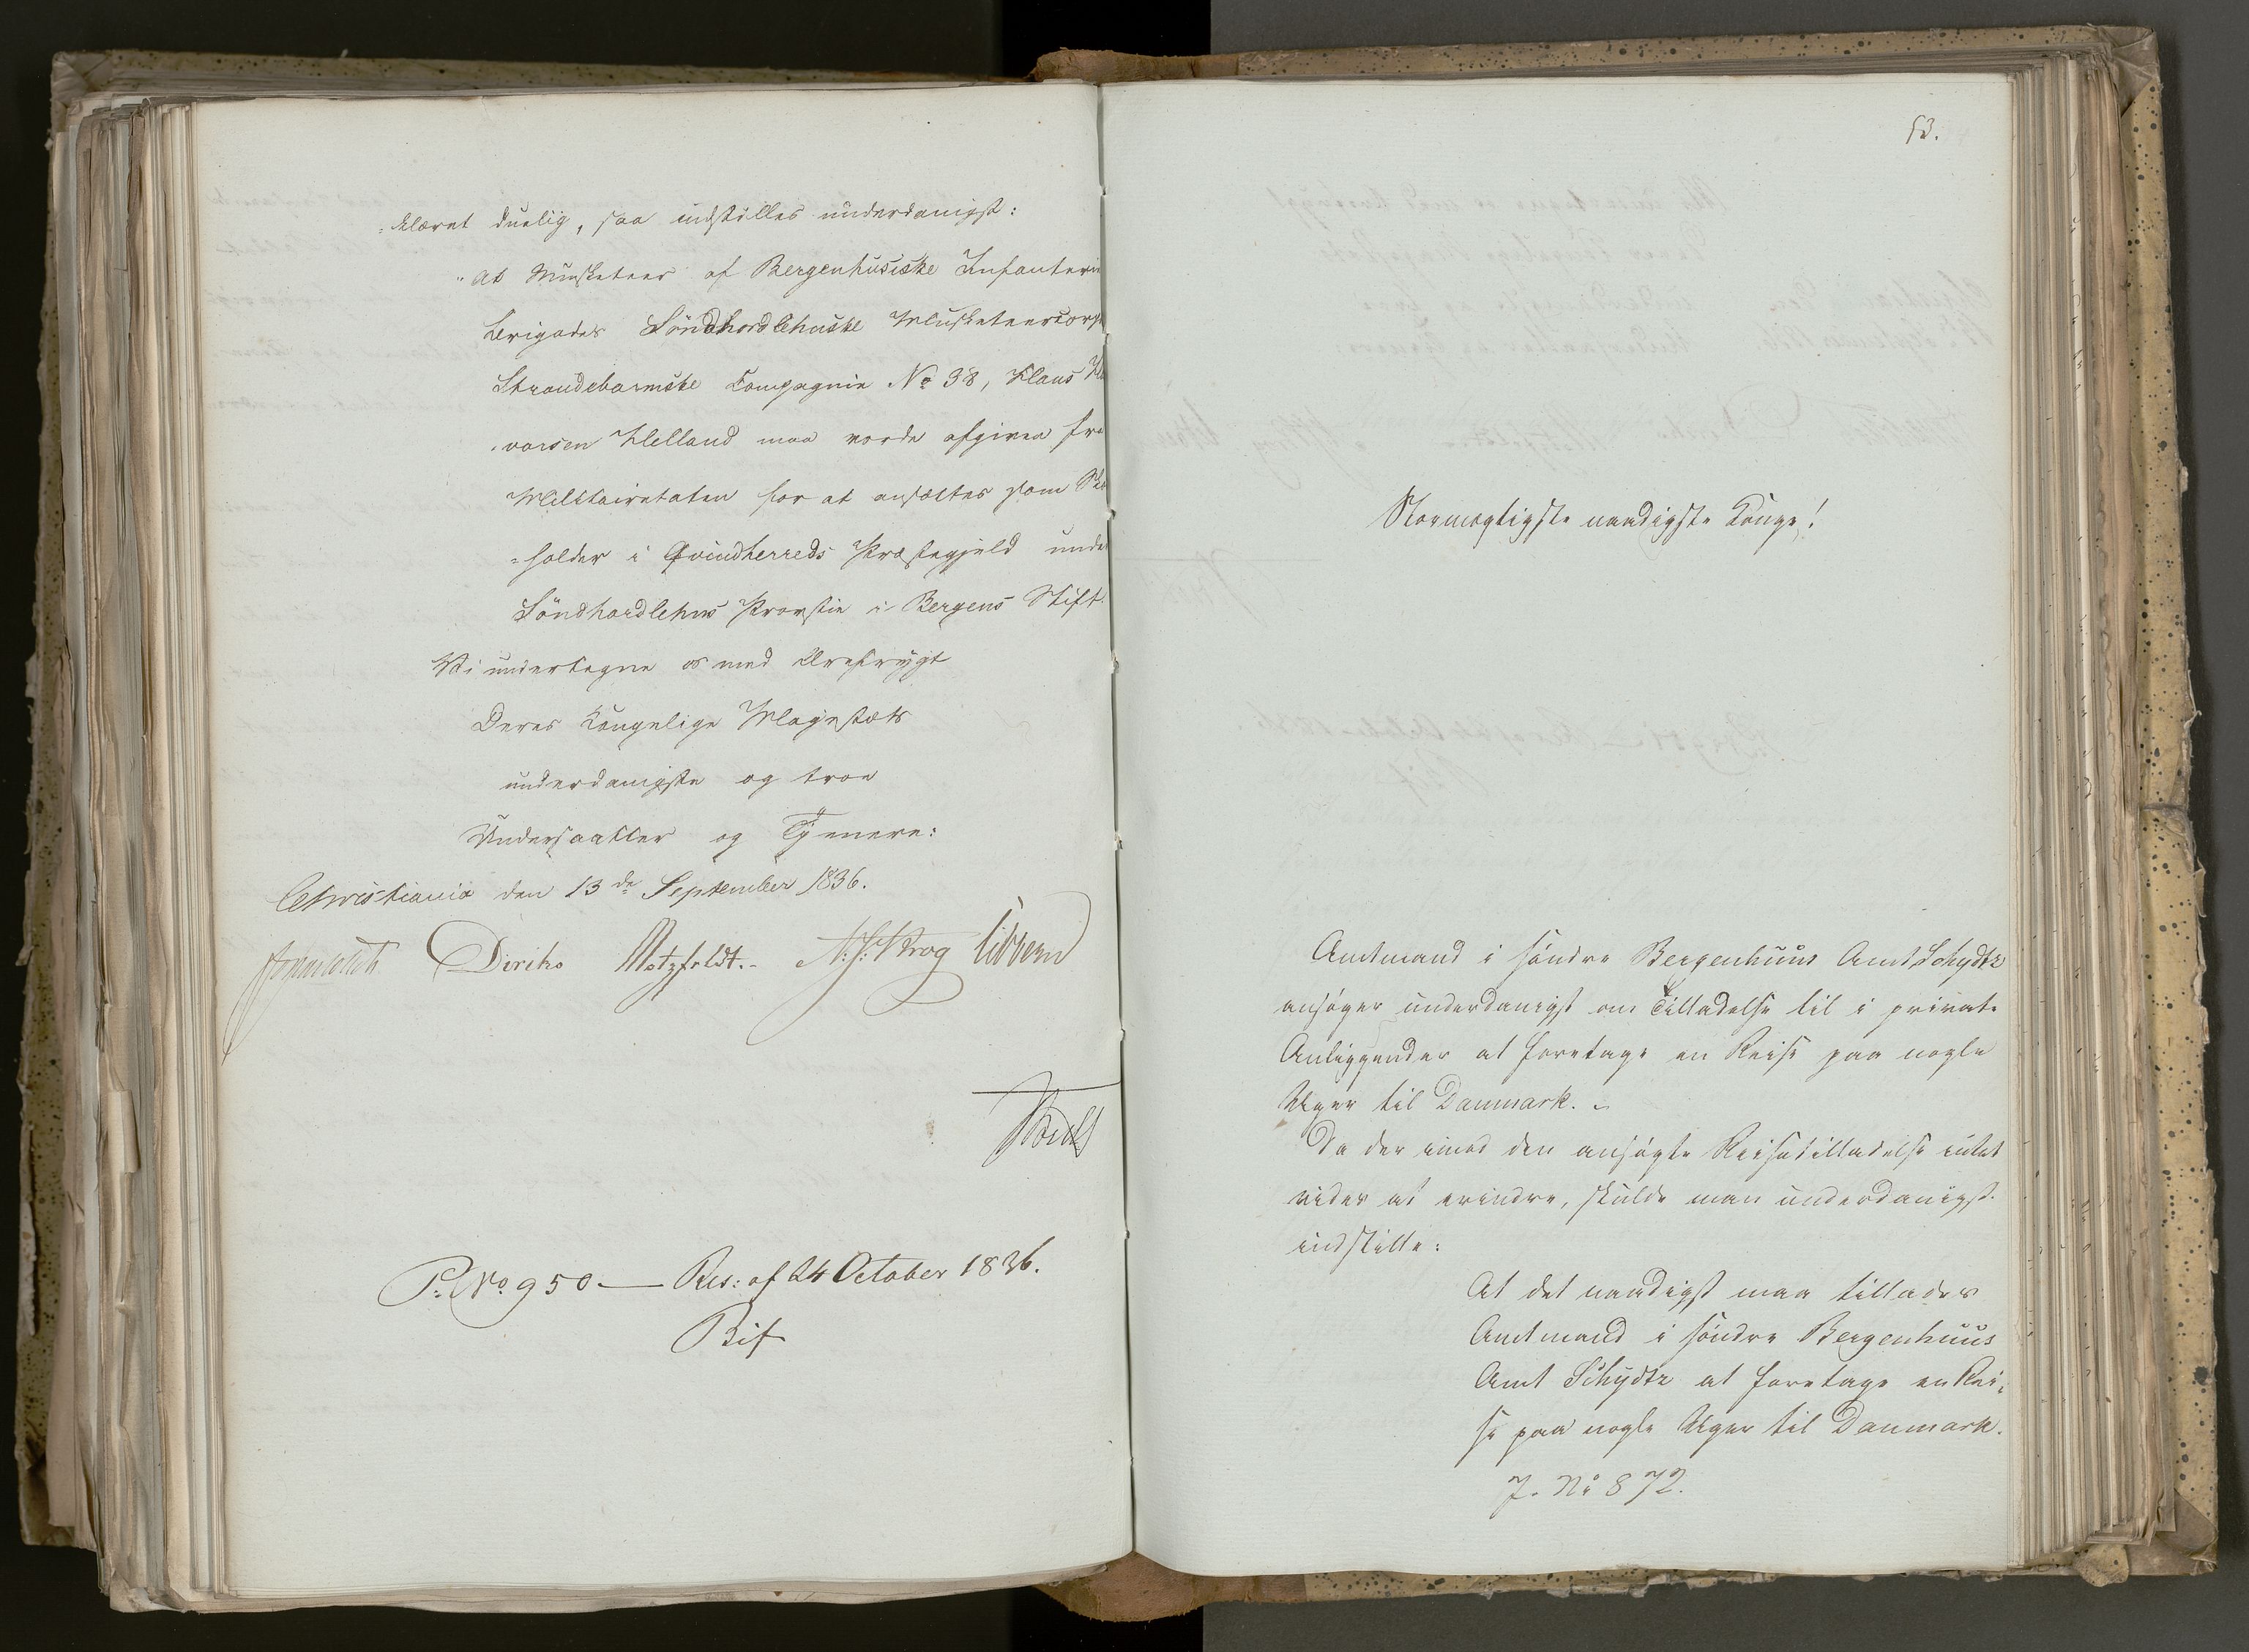 -klæret duelig, saa indstilles underdanigst:
"At Musketeer af Bergenhusiske Infanterie
Brigades Söndhordlehnske Musketeercorps
Strandebarmske Compagnie No 38, Klaus
-varsen Helland maa vorde afgiven fra
Militairetaten for at ansættes som
-holder i Qvindherreds Præstegjeld under
Söndhordlehns Provstie i Bergens Stift.
Vi undertegne os med Ærefrygt
Deres Kongelige Majestæts
underdanigste og troe
Undersaatter og Tjenere:
Christiania den 13de September 1836.
Diriks Motzfeldt. N. J. Krog
P. No. 950 — Res: af 24 October 1836.
Bif
53.
Stormægtigste naadigste Konge!
Amtmand i söndre Bergenhuus Amt Schydtz
ansöger underdanigst om Tilladelse til i private
Anliggender at foretage en Reise paa nogle
Uger til Danmark.
Da der imod den ansögte Reisetilladelse intet
vides at erindre, skulde man underdanigst
indstille:
At det naadigst maa tillades
Amtmand i söndre Bergenhuus
Amt Schydtz at foretage en Rei-
se paa nogle Uger til Danmark.
J. No 872.